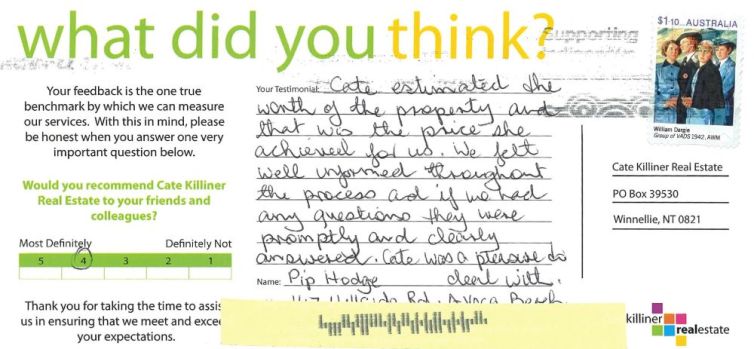 what did you think?
Supporting
$1.10 AUSTRALIA
William Dargie
Group of VADS 1942, AWM
Your feedback is the one true
benchmark by which we can measure
our services. With this in mind, please
be honest when you answer one very
important question below.
Would you recommend Cate Killiner
Real Estate to your friends and
colleagues?
Most Definitely Definitely Not
5 4 3 2 1
Thank you for taking the time to assis
us in ensuring that we meet and excee
your expectations.
Your Testimonial: Cate estimated the
worth of the property and
that was the price she
achieved for us. We felt
well informed throughout
the process ad if we had
any questions they were
promptly and clearly
answered. Cate was a pleasure to
Name: Pip Hodge deal with.
Hillside Rd. Avoca Beach
Cate Killiner Real Estate
PO Box 39530
Winnellie, NT 0821
killiner
realestate